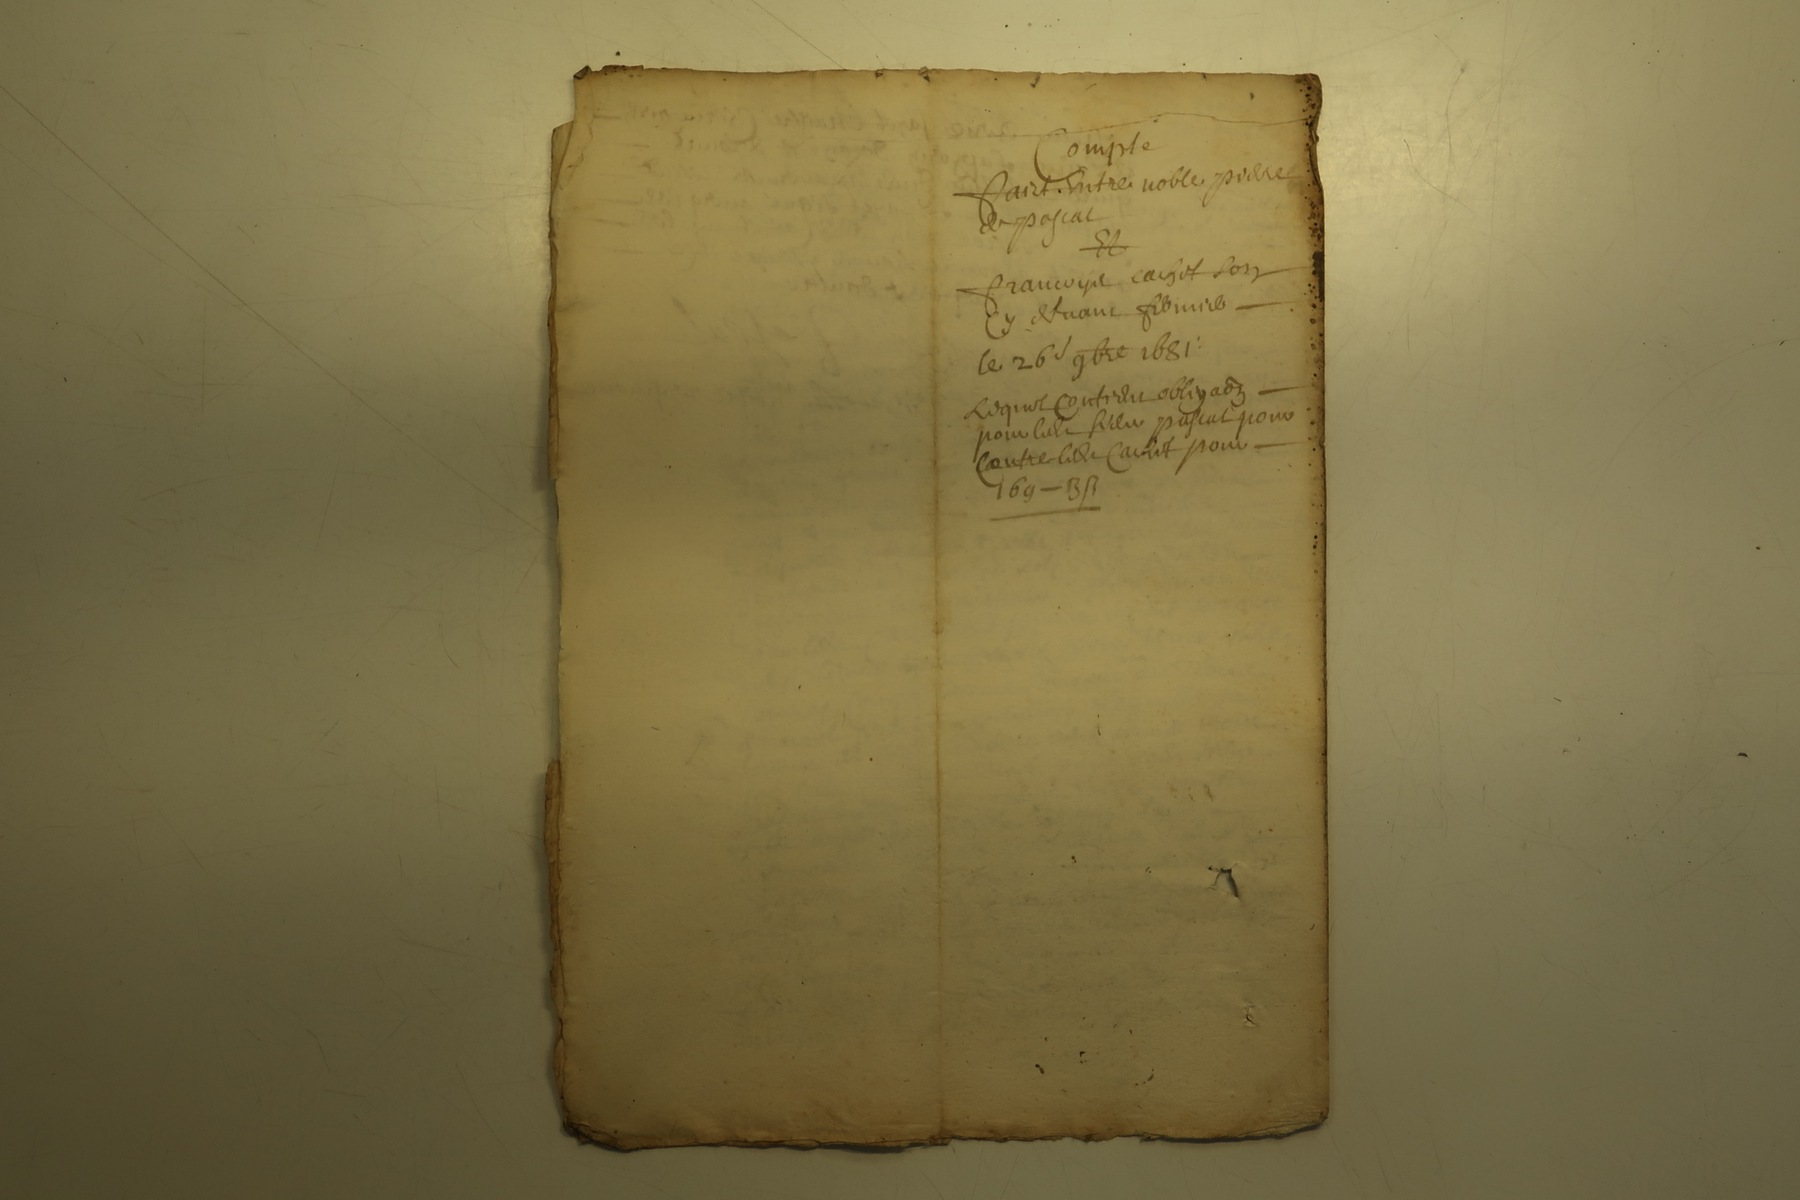 Compte
faict Entre noble pierre
de pascal
Et
francoys cachet son
cy devant fermier
le 26e 9bre 1681
Lequel Contient obligaon
pour led. sieur pascal pour
Contre led. Cachet pour
169 — 3 ß